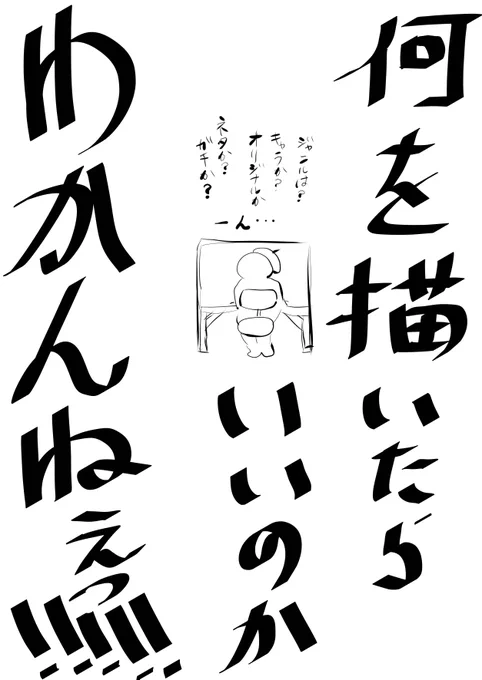 何を描いたら
いいのか
わかんねぇっ!!!!!
ジャンルは?
きゃらか?
オリジナルか
ネタか?
ガチか?
…んー